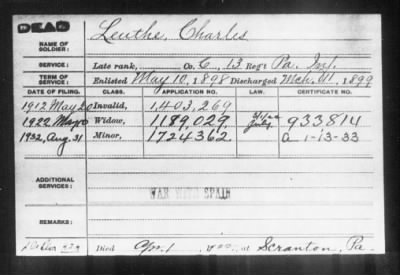 DEAD
Leuthe, Charles
NAME OF
SOLDIER:
SERVICE: Late rank, Co. C, 13 Reg't Pa. Inf.
TERM OF
SERVICE: Enlisted May 10, 1898 Discharged Mch. 11, 1899
DATE OF FILING. CLASS. APPLICATION NO. LAW. CERTIFICATE NO.
1912 May 20 Invalid, 1,403,269
1922 May Widow, 1189,029 933814
1932, Aug. 31 Minor, 1724362 a 1-13-33
ADDITIONAL
SERVICES:
WAR WITH SPAIN
REMARKS:
Died at Scranton, Pa.